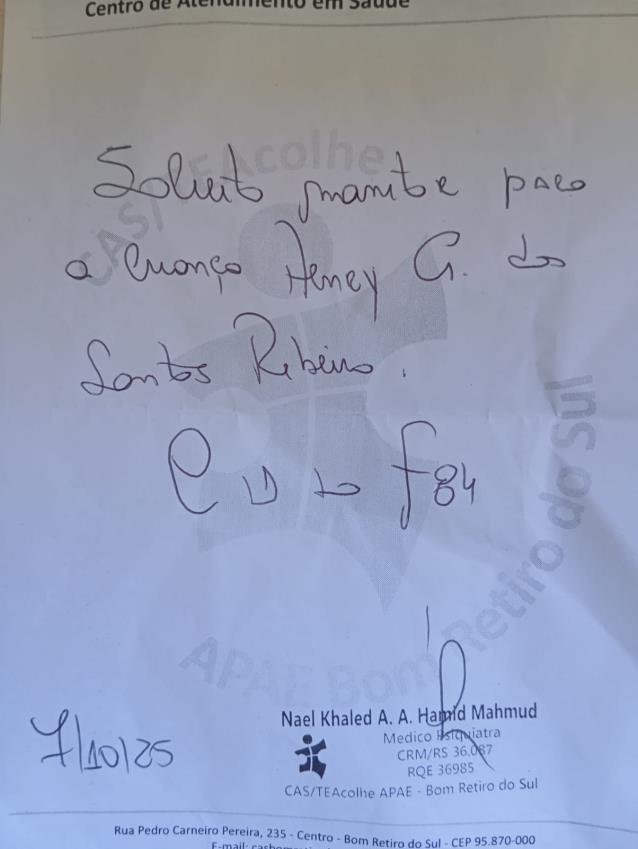 Centro de Atendimento em Saúde
Solicito monitor para
a criança Henry G. dos
Santos Ribeiro.
CID 10 F84
7/10/25
Nael Khaled A. A. Hamid Mahmud
Medico Psiquiatra
CRM/RS 36.087
RQE 36985
CAS/TEAcolhe APAE - Bom Retiro do Sul
CAS/TEAcolhe
APAE Bom Retiro do Sul
Rua Pedro Carneiro Pereira, 235 - Centro - Bom Retiro do Sul - CEP 95.870-000